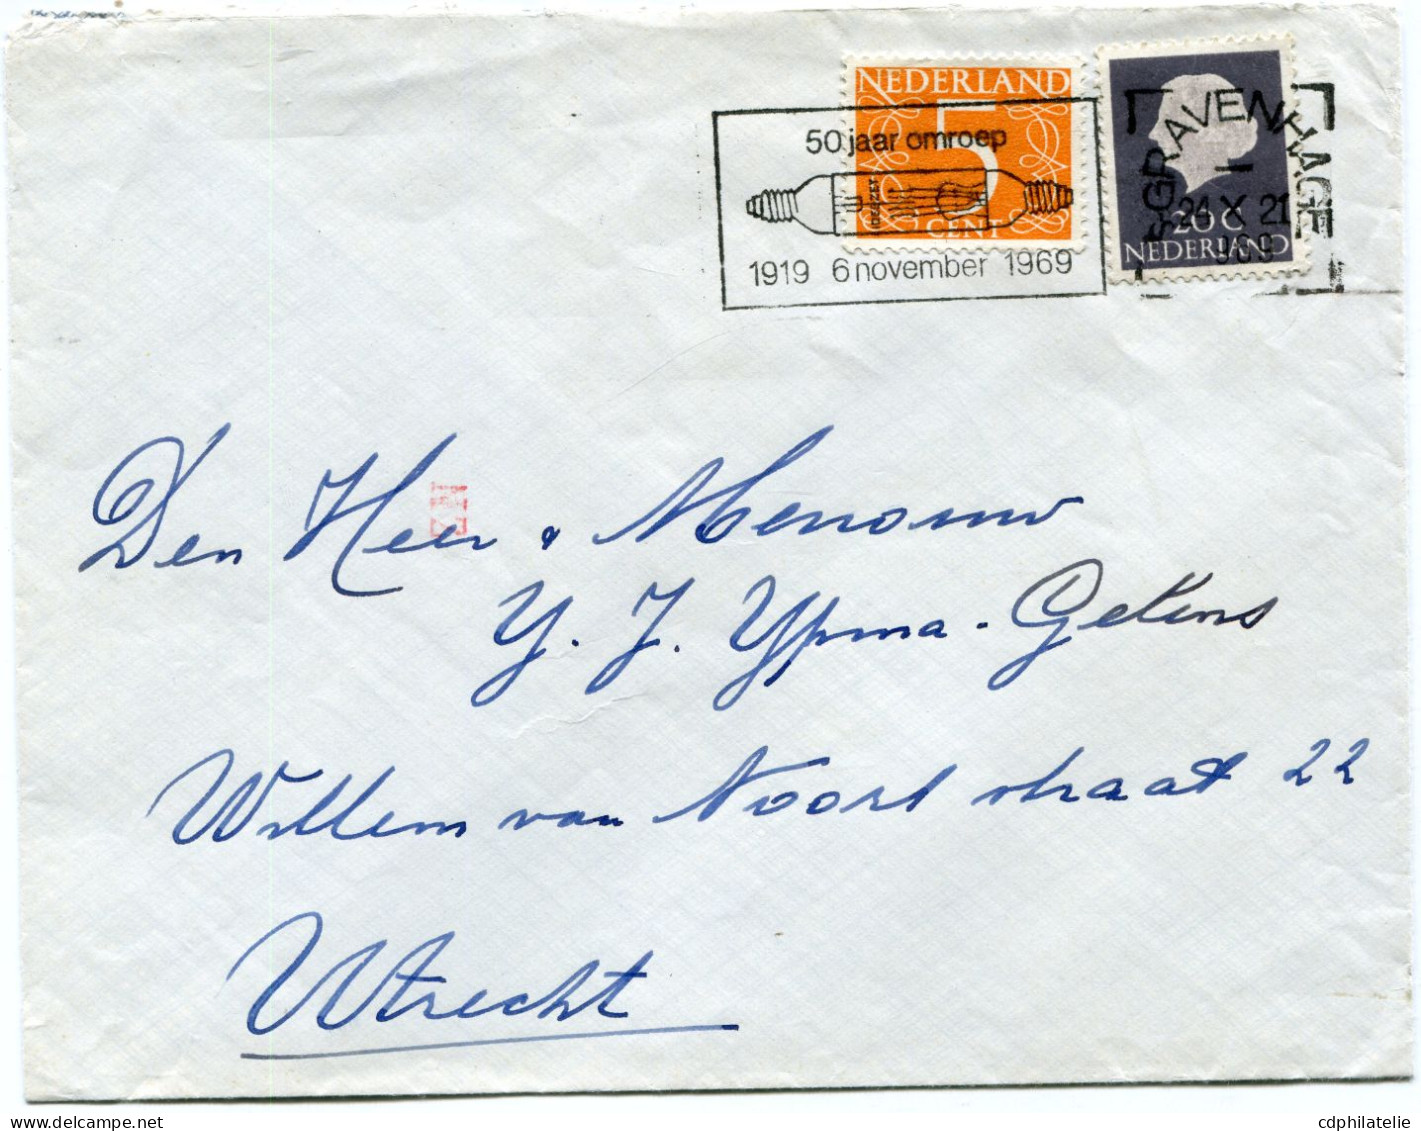 NEDERLAND
5
CENT
50 jaar omroep
1919 6 november 1969
'S-GRAVENHAGE
1
24 X 21
969
20 C
NEDERLAND
Den Heer & Mevrouw
Y. J. Ypma-Gekens
Willem van Noort straat 22
Utrecht
delcampe.net
cdphilatelie